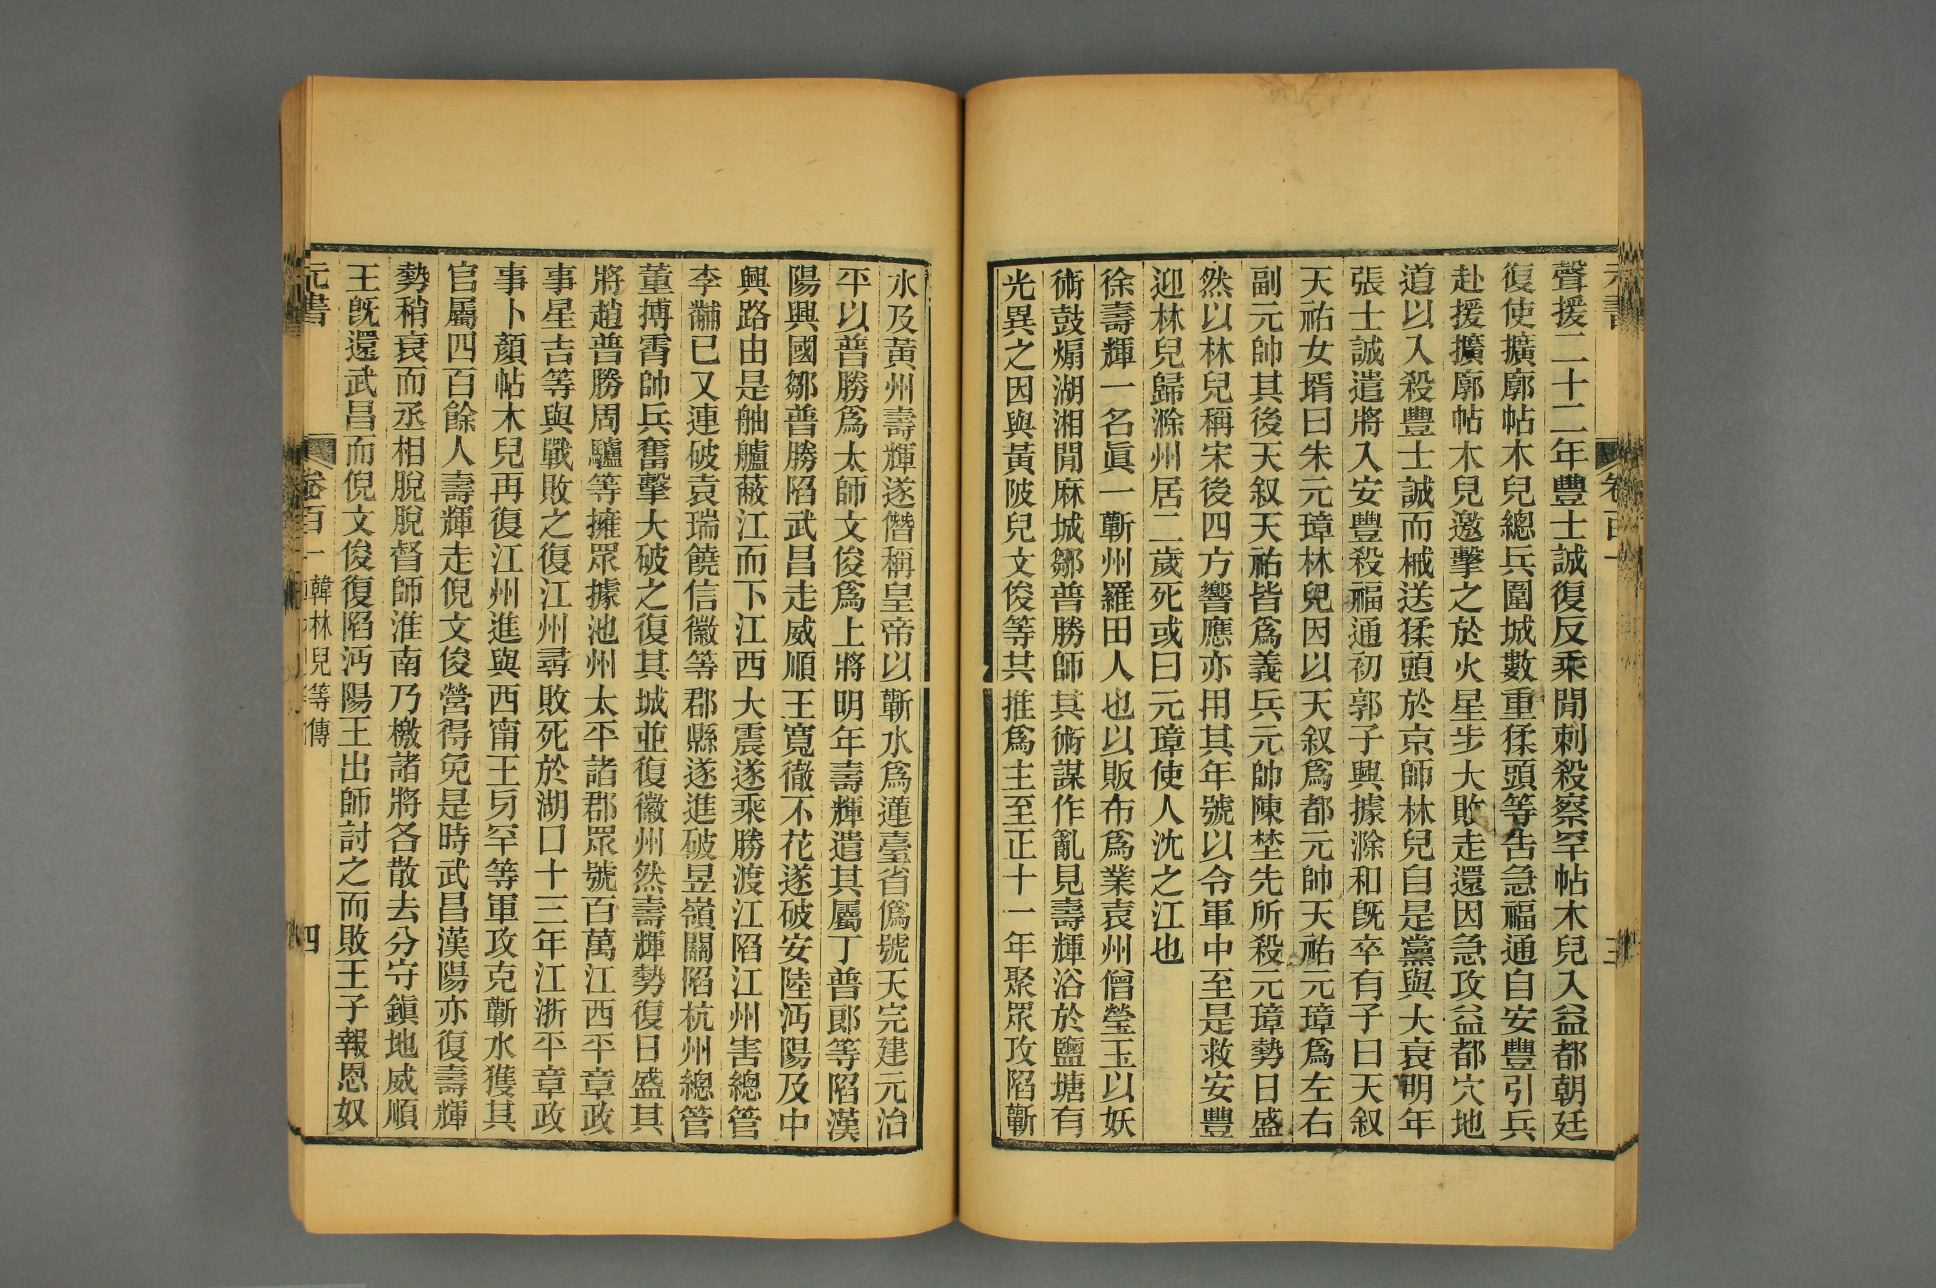 元書
卷百一
三
聲援二十二年豐士誠復反乘閒刺殺察罕帖木兒入益都朝廷
復使擴廓帖木兒總兵圍城數重猱頭等告急福通自安豐引兵
赴援擴廓帖木兒邀擊之於火星步大敗走還因急攻益都穴地
道以入殺豐士誠而械送猱頭於京師林兒自是黨與大衰明年
張士誠遣將入安豐殺福通初郭子興據滁和旣卒有子曰天叙
天祐女壻曰朱元璋林兒因以天叙爲都元帥天祐元璋爲左右
副元帥其後天叙天祐皆爲義兵元帥陳埜先所殺元璋勢日盛
然以林兒稱宋後四方響應亦用其年號以令軍中至是救安豐
迎林兒歸滁州居二歲死或曰元璋使人沈之江也
徐壽輝一名眞一蘄州羅田人也以販布爲業袁州僧瑩玉以妖
術鼓煽湖湘閒麻城鄒普勝師其術謀作亂見壽輝浴於鹽塘有
光異之因與黃陂兒文俊等共推爲主至正十一年聚眾攻陷蘄
水及黃州壽輝遂僭稱皇帝以蘄水爲蓮臺省僞號天完建元治
平以普勝爲太師文俊爲上將明年壽輝遣其屬丁普郎等陷漢
陽興國鄒普勝陷武昌走威順王寬徹不花遂破安陸沔陽及中
興路由是舳艫蔽江而下江西大震遂乘勝渡江陷江州害總管
李黼已又連破袁瑞饒信徽等郡縣遂進破昱嶺關陷杭州總管
董摶霄帥兵奮擊大破之復其城並復徽州然壽輝勢復日盛其
將趙普勝周驢等擁眾據池州太平諸郡眾號百萬江西平章政
事星吉等與戰敗之復江州尋敗死於湖口十三年江浙平章政
事卜顏帖木兒再復江州進與西甯王旁罕等軍攻克蘄水獲其
官屬四百餘人壽輝走倪文俊營得免是時武昌漢陽亦復壽輝
勢稍衰而丞相脫脫督師淮南乃檄諸將各散去分守鎮地威順
王旣還武昌而倪文俊復陷沔陽王出師討之而敗王子報恩奴
元書
卷百一
韓林兒等傳
四